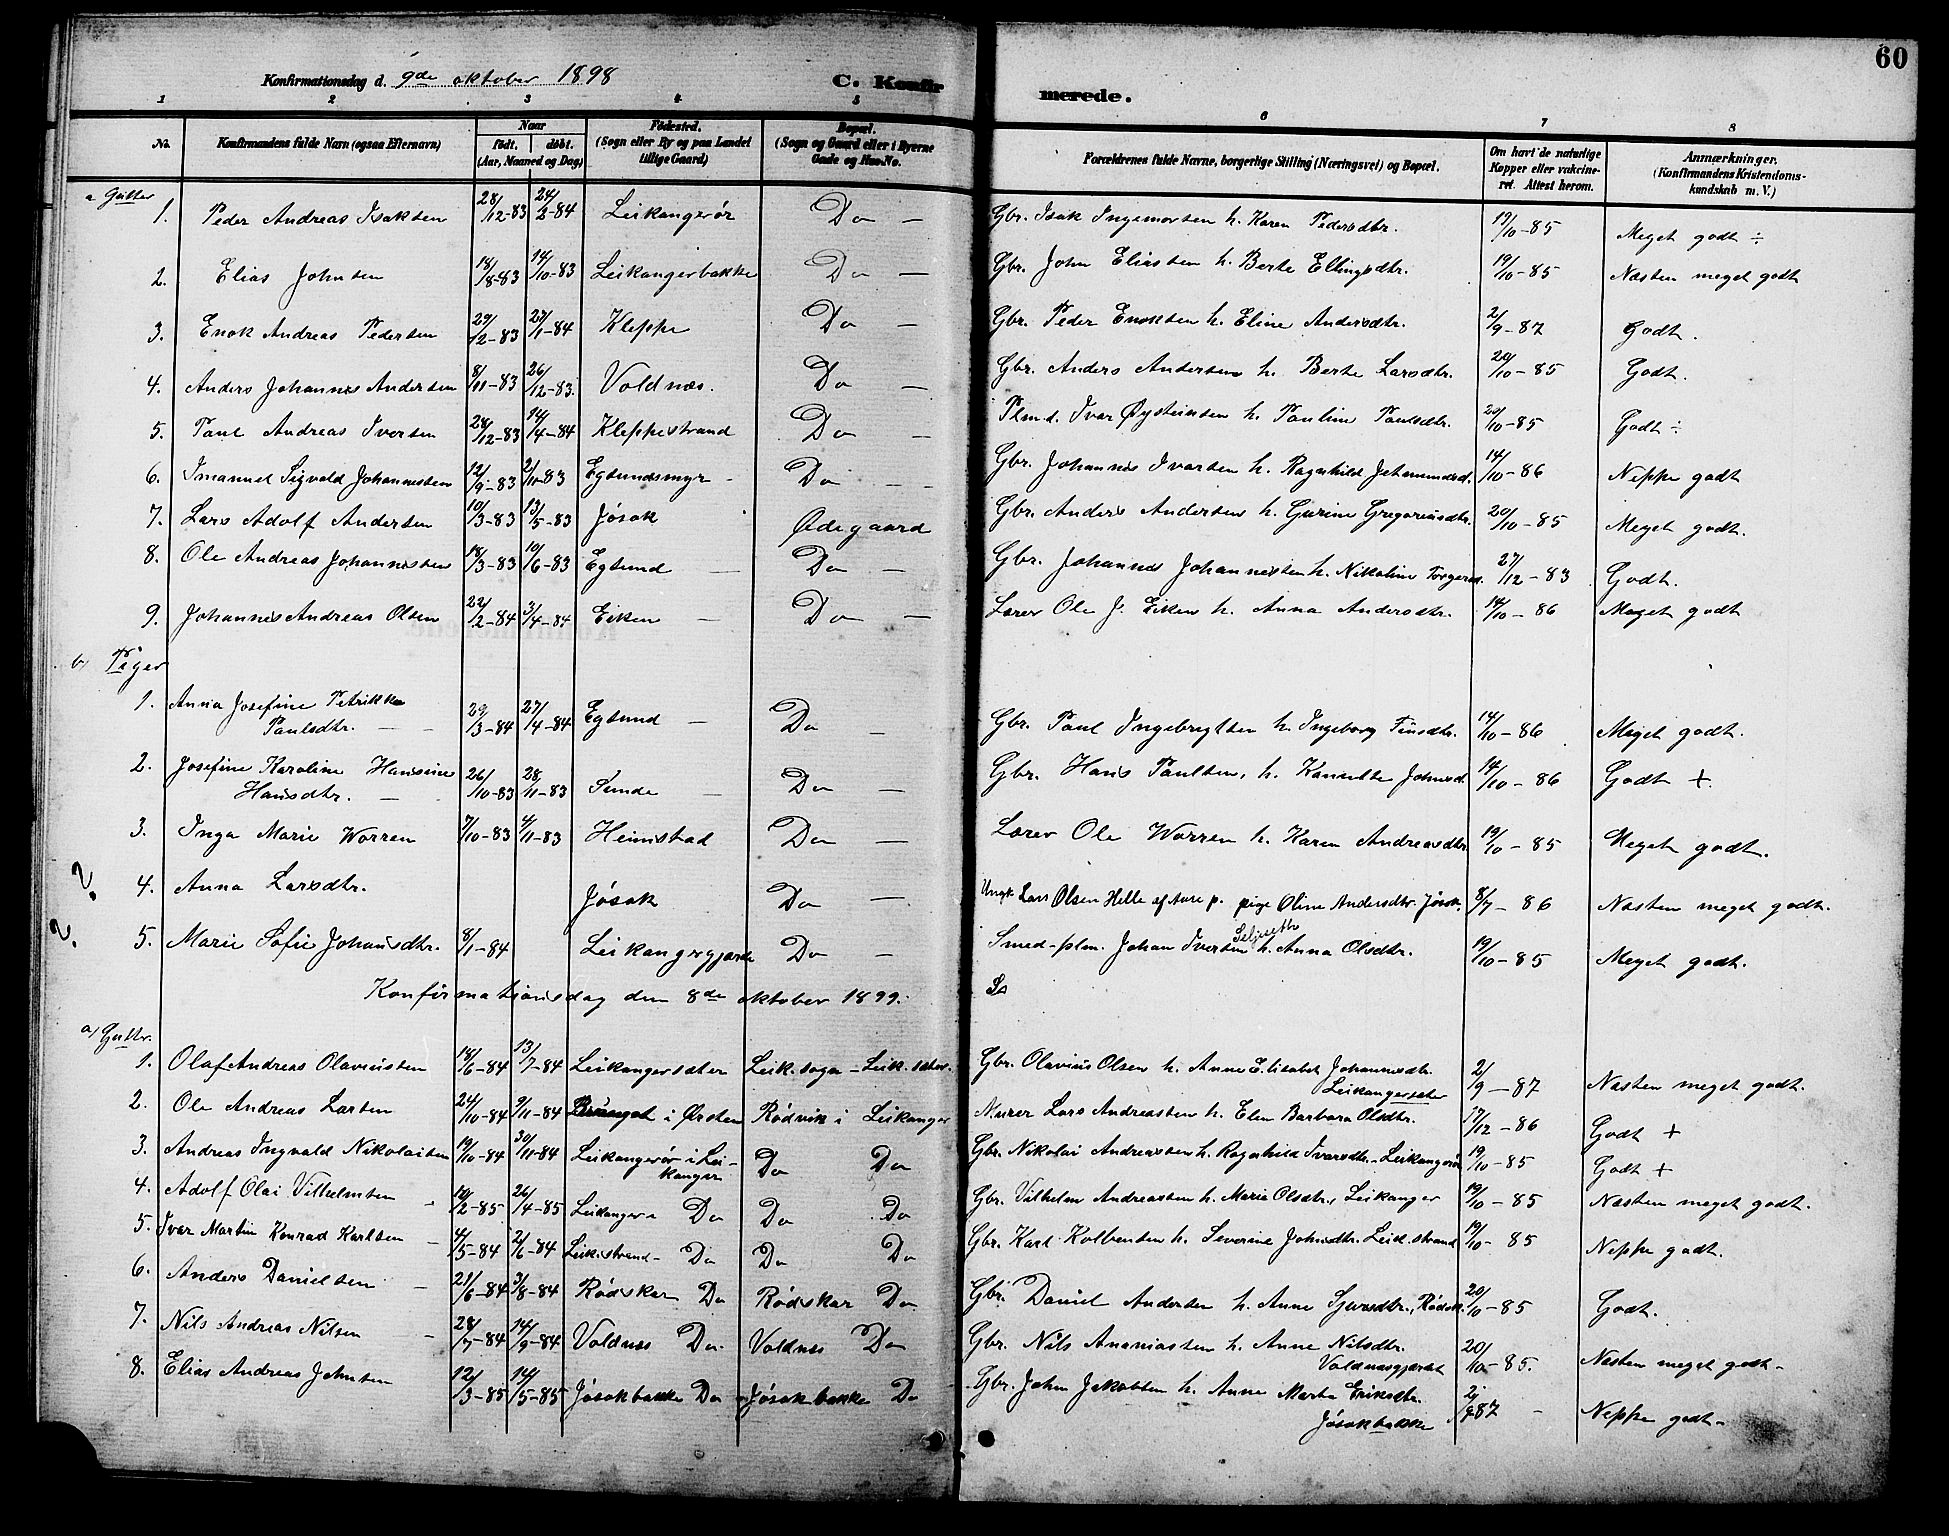 60
Konfirmationsdag d. 9de oktober 1898 C. Konfir merede.
1 2 3 4 5 6 7 8
No. Konfirmandens fulde Navn (ogsaa Efternavn) Naar født. døbt. (Aar, Maaned og Dag) Fødested. (Sogn eller By og paa Landet tillige Gaard) Bopæl. (Sogn og Gaard eller i Byerne Gade og Hus-No. Forældrenes fulde Navne, borgerlige Stilling (Næringsvei) og Bopæl. Om havt de naturlige Kopper eller vakcineret. Attest herom. Anmærkninger. (Konfirmandens Kristendomskundskab m. V.)
a Gutter
1. Peder Andreas Isaksen 28/12-83 24/2-84 Leikangerør Do — Gbr. Isak Ingemorsen h. Karen Pedersdtr. 19/10-85 Meget godt ÷
2. Elias Johnsen 18/8-83 14/10-83 Leikangerbakke Do — Gbr. John Eliassen h. Berte Ellingsdtr. 19/10-85 Næsten meget godt
3. Enok Andreas Pedersen 29/12-83 27/1-84 Kleppe Do — Gbr. Peder Enoksen h. Eline Andersdtr. 2/9-87 Godt.
4. Anders Johannes Andersen 8/11-83 26/12-83. Voldnæs. Do — Gbr. Anders Andersen h. Berte Larsdtr. 20/10-85 Godt.
5. Paul Andreas Iversen 28/12-83 14/4-84 Kleppestrand Do — Plmd. Ivar Øysteinsen h. Pauline Paulsdtr. 20/10-85 Godt ÷
6. Imanuel Sigvald Johannessen 12/9-83 2/10-83 Egsundsmyr - Do — Gbr. Johannes Ivarsen h. Ragnhild Jetmundsd. 14/10-86 Neppe godt
7. Lars Adolf Andersen 10/3-83 13/5-83 Jøsok Ødegaard Gbr. Anders Andersen h. Gurine Gregoriusdtr. 20/10-85 Meget godt.
8. Ole Andreas Johannessen 18/3-83 10/6-83 Egsund — Do — Gbr. Johannes Johannessen h. Nikoline Torgersd. 27/12-83 Godt.
9. Johannes Andreas Olsen 22/2-84 3/4-84 Eiken — Do — Lærer Ole J. Eiken h. Anna Andersdtr. 14/10-86 Meget godt
b) Piger
1. Anna Josefine Petrikke
Paulsdtr. — 29/3-84 27/4-84 Egsund — Do — Gbr. Paul Ingebrigtsen h. Ingeborg Finsdtr. 14/10-86 Meget godt.
2. Josefine Karoline Hansine
Hansdtr. — 26/10-83 28/11-83 Sunde — Do — Gbr. Hans Paulsen, h. Kanutte Johnsd. 14/10-86 Godt +
3. Inga Marie Worren 7/10-83 4/11-83 Heimstad Do — Lærer Ole Worren h. Karen Andreasdtr. 19/10-85 Meget godt.
?
4. Anna Larsdtr. Jøsok Do — Ungk. Lars Olsen Helle af Aure p. pige Oline Andersdtr. Jøsok. 8/7-86 Næsten meget godt.
?
5. Marie Sofie Johansdtr. 8/1-84 Leikangergjærde Do — Smed-plm. Johan Iversen Seljeseth h. Anna Olsdtr. 19/10-85 Meget godt.
Konfirmationsdag den 8de oktober 1899.
a) Gutter.
1. Olaf Andreas Olaviussen 18/6-84 13/7-84 Leikangersæter Leik.sogn - Leik.sæter. Gbr. Olavius Olsen h. Anne Elisabet Johannesdtr.
Leikangersæter 2/9-87 Næsten meget godt.
2. Ole Andreas Larsen 24/10-84 9/11-84 i Ørsten Rødvik i Leikanger Murer Lars Andreassen h. Elen Barbara Olsdtr. 17/12-86 Godt +
3. Andreas Ingvald Nikolaisen 19/10-84 30/11-84 Leikangerør i Lei-
kanger Do Do Gbr. Nikolai Andreassen h. Ragnhild Ivarsdtr. - Leikangerør 19/10-85 Godt +
4. Adolf Olai Vilhelmsen 14/2-85 26/4-85 Leikanger - Do Do Do Gbr. Vilhelm Andreassen h. Marie Olsdtr., Leikanger 19/10-85 Næsten meget godt.
5. Ivar Martin Konrad Karlsen 4/5-84 2/6-84 Leikstrand - Do Do Do Gbr. Karl Kolbensen h. Severine Johnsdtr. Leik.strand 19/10-85 Neppe godt.
6. Anders Danielsen — 21/6-84 3/8-84 Rødskar Do Rødskar Do Gbr. Daniel Andersen h. Anne Sjursdtr., Rødsk. 20/10-85 Godt.
7. Nils Andreas Nilsen — 28/7-84 14/9-84 Voldnes Do. Voldnes Do Gbr. Nils Ananiassen h. Anne Nilsdtr.
Voldnesgjærdet 20/10-85. Næsten meget godt -
8. Elias Andreas Johnsen 12/3-85 14/5-85 Jøsokbakke Do - Jøsokbakke Do Gbr. John Jakobsen h. Anne Marta Eriksdtr.
Jøsokbakke 2/9 87 - Neppe godt -